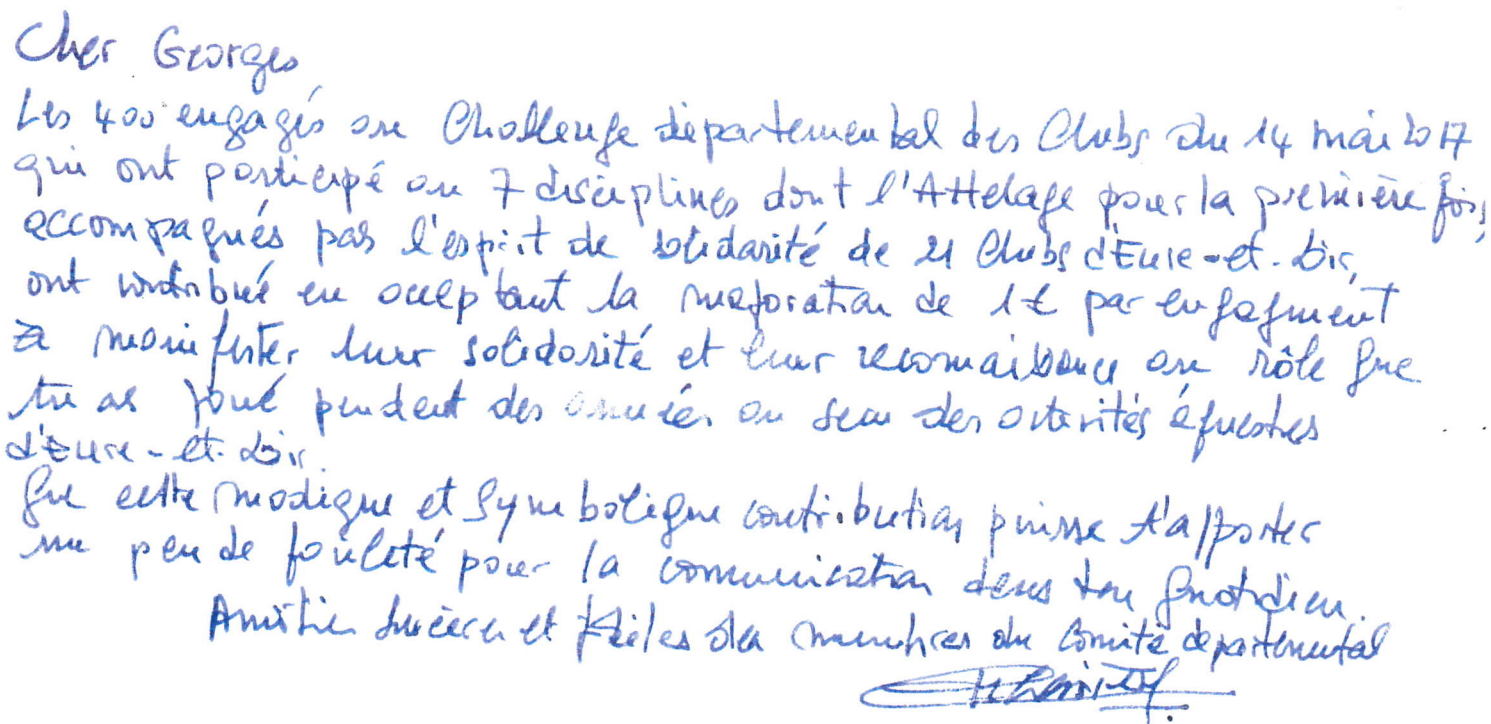 Cher Georges
Les 400 engagés au Challenge départemental des Clubs du 14 mai 2017
qui ont participé au 7 disciplines dont l'Attelage pour la première fois,
accompagnés par l'esprit de solidarité de 21 Clubs d'Eure-et-Loir,
ont contribué en acceptant la majoration de 1€ par engagment
à manifester leur solidarité et leur reconnaissance au rôle que
tu as joué pendant des années au sein des activités équestres
d'Eure-et-Loir
Que cette modique et symbolique contribution puisse t'apporter
un peu de facilité pour la communication dans ton quotidien.
Amitiés sincères et des membres du Comité départemental